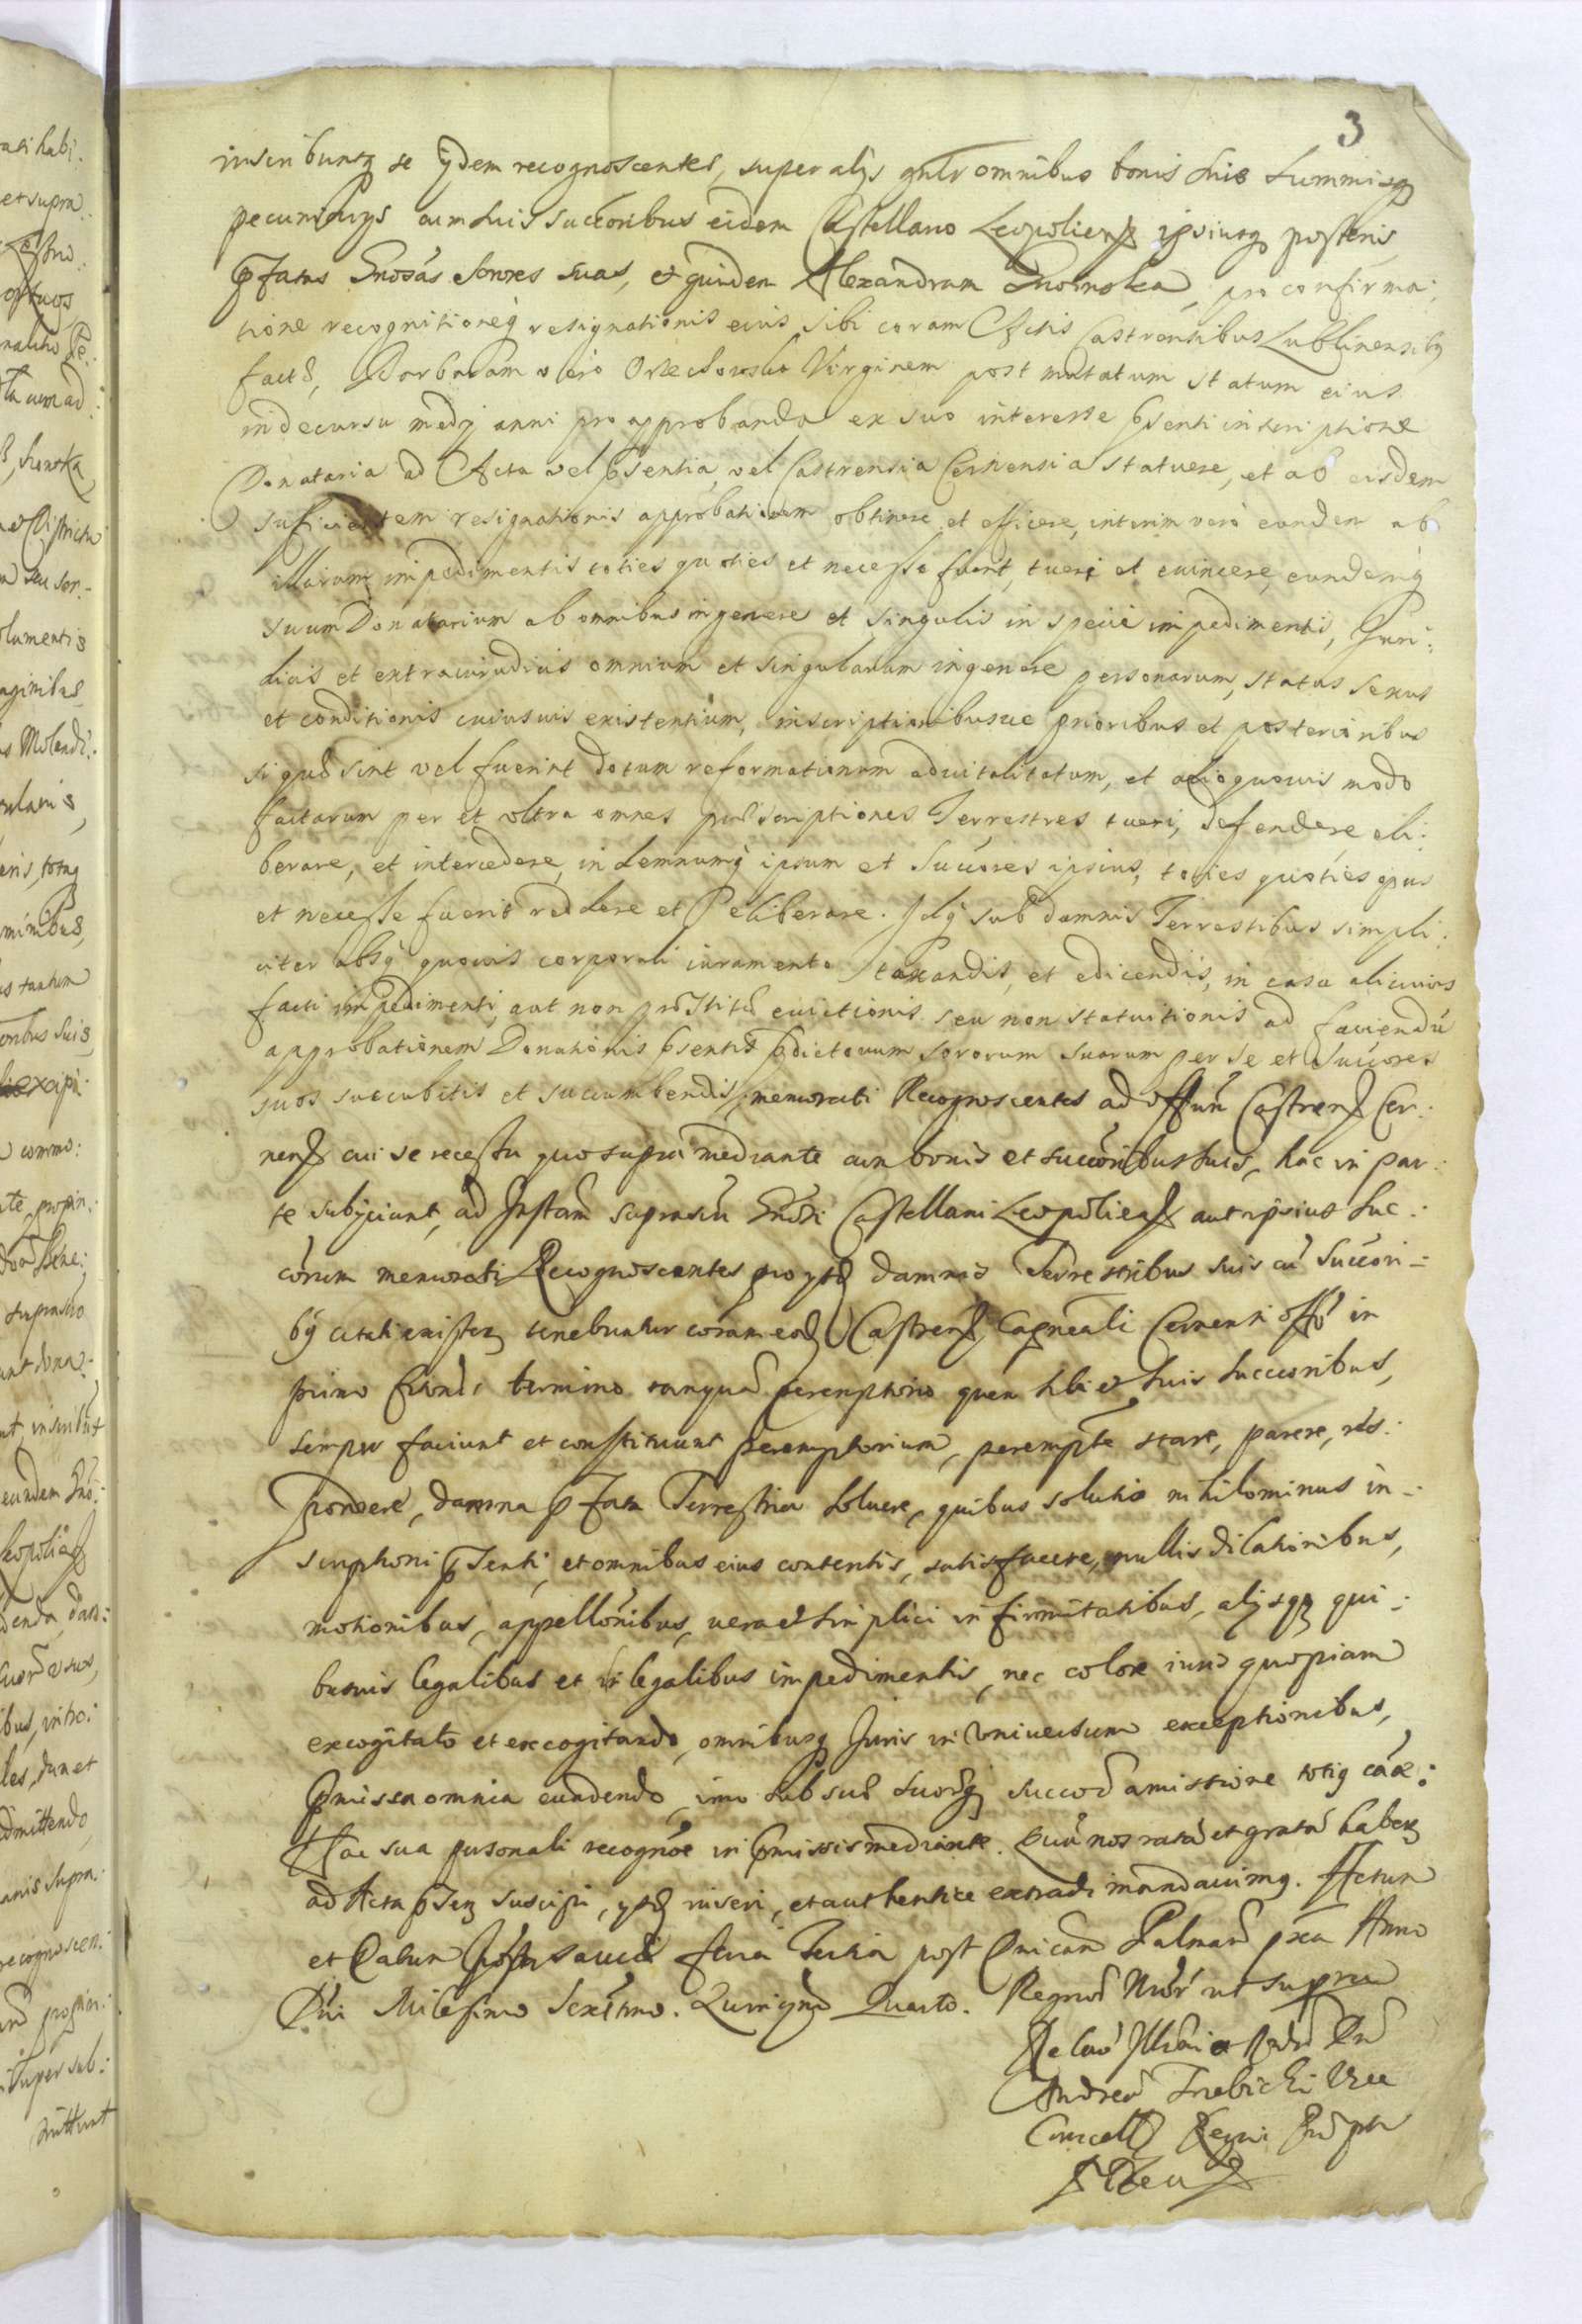 3
inscribuntq se ijdem recognoscentes, super alijs gnlr omnibus bonis suis summisq
pecuniarijs cum suis successoribus eidem Castellano Leopoliens ipsiusq posteris,
pfatas Gnosas sorores suas, et quidem Alexandram, pro confirma:
tione recognitioneq resignationis eius sibi coram Actis Castrensibus Lublinensibq
facta, Barbaram vero Orzechowska Virginem post mutatum statum eius
in decursu medij anni pro approbanda ex suo interesse psenti inscriptione
Donataria ad Acta vel psentia, vel Castrensia Cernensia statuere, et ab eisdem
sufficientem resignationis approbationem obtinere et efficere, interim vero eundem ab
illarum impedimentis toties quoties et necesse fuerit, tueri et euincere, eundemq
suum Donatarium ab omnibus in genere et singulis in specie impedimentis, Juri:
dicis et extraiuridicis omnium et singularum in genere personarum, status sexus
et conditionis cuiusuis existentium, inscriptionibusue prioribus et posterioribus
si que sint vel fuerint dotum reformationum aduitalitatum, et alio quouis modo
factarum per et vltra omnes prescriptiones Terrestres tueri, defendere, eli:
berare, et intercedere, indemnemq ipsum et Succores ipsius, toties quoties opus
et necesse fuerit reddere et eliberare. Idq sub damnis Terrestribus simpli:
citer absq quouis corporali iuramento taxandis, et edicendis, in casu alicuius
facti impedimenti, aut non prestite euictionis seu non statuitionis ad faciendu
approbationem Donationis psentis pdictarum sororum suarum per se et Succores
suos succubitis et succumbendis, memorati Recognoscentes ad offum Castrens Cer:
nens cui se recessu quo supra mediante cum bonis et succoribus suis, hac in par:
te subijciunt, ad Instam suprascri Gnosi Castellani Leopoliens aut ipsius suc:
corum memorati Recognoscentes pro ytq damnis Terrestribus suis cu Succori:
bq citati existen tenebuntur coram eod Castrens Capneali Cernensi offo in
primo termino tanqua peremptorio quem sibi et suis succoribus,
semper faciunt et constituunt peremptorium, perempte stare, parere, res:
pondere, damna pfata Terrestria soluere, quibus solutis nihilominus in:
scriptioni psenti, et omnibus eius contentis, satisfacere, nullis dilationibus,
motionibus, appellonibus, vera et simplici infirmitatibus, alijsq qui:
busuis legalibus et illegalibus impedimentis, nec colore iuris quopiam
excogitato et excogitando, omnibusq Juris in vniuersum exceptionibus,
pmissa omnia euadendo, imo sub sua suorq succor amissione totiq cae:
Hac sua personali recognoe in pmissis mediante. Qua nos rata et grata haben
ad Acta psen suscipi, ytq inseri, et authentice extradi mandauimq. Actum
et Datum feria Tertia post Dnicam Palmar pxa Anno
Dni Milesimo Sexcmo. Quinqno Quarto. Regnor Nror ut supra
Relao Illris et Rndi Dni
Andreæ Trzebicki Vice
Cancell Regni